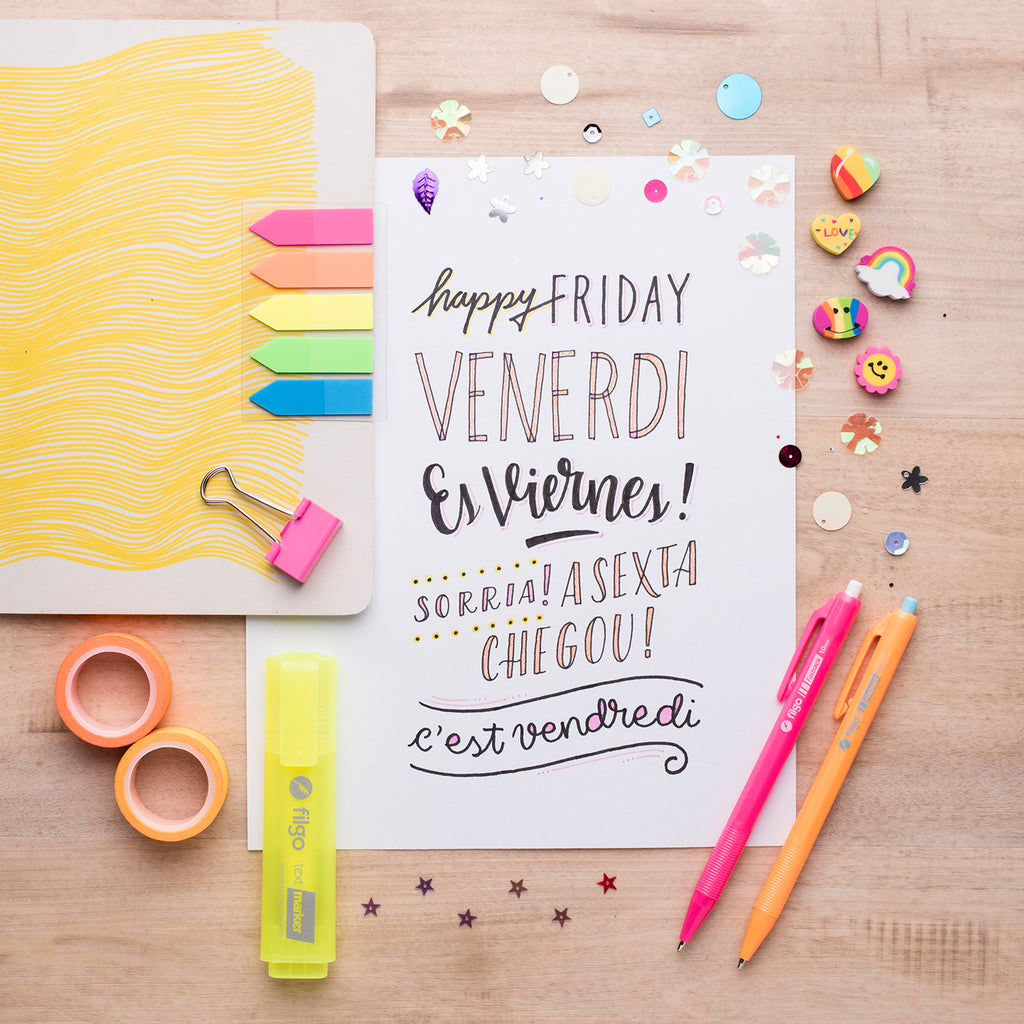 happy FRIDAY
VENERDI
Es Viernes!
SORRIA! A SEXTA
CHEGOU!
c'est vendredi
LOVE
filgo
text marker
filgo
filgo